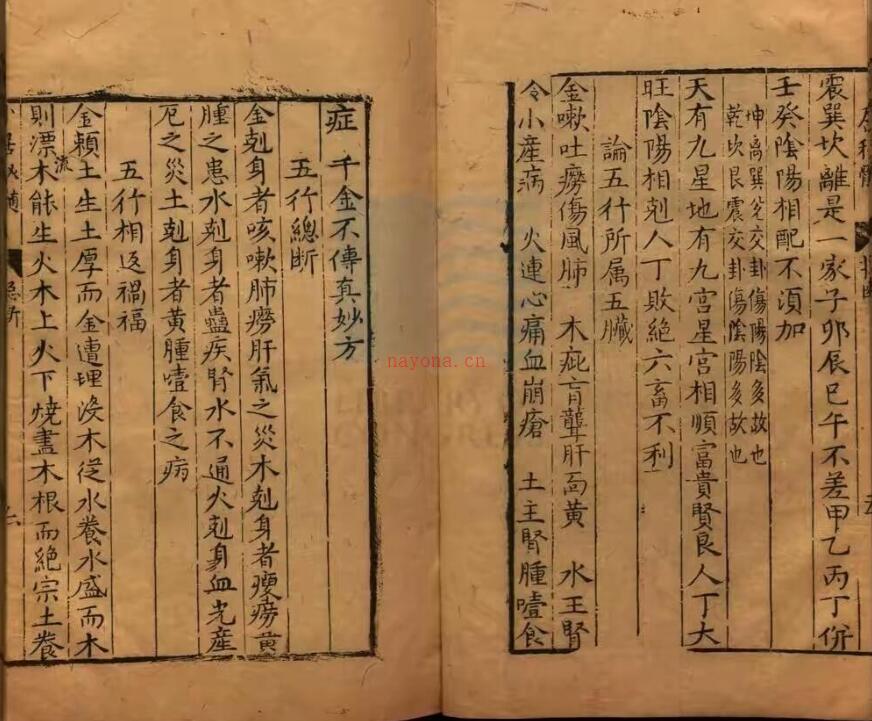 震巽坎離是一家子卯辰巳午不差甲乙丙丁併
壬癸陰陽相配不須加
坤离巽兌交卦傷陽陰多故也
乾坎艮震交卦傷陰陽多故也
天有九星地有九宮星宮相順富貴賢良人丁大
旺陰陽相剋人丁敗絕六畜不利
論五行所属五臟
金嗽吐癆傷風肺 木疵盲聾肝面黃 水王腎
令小產病 火連心痛血崩瘡 土主腎腫噎食
症 千金不傳真妙方
五行總断
金剋身者咳嗽肺癆肝氣之災木剋身者瘦癆黄
腫之患水剋身者蠱疾腎水不通火剋身血光産
厄之災土剋身者黃腫噎食之病
五行相返禍福
金頼土生土厚而金遭埋没木從水養水盛而木
則漂流木能生火木上火下燒盡木根而絕宗土養
nayona.cn